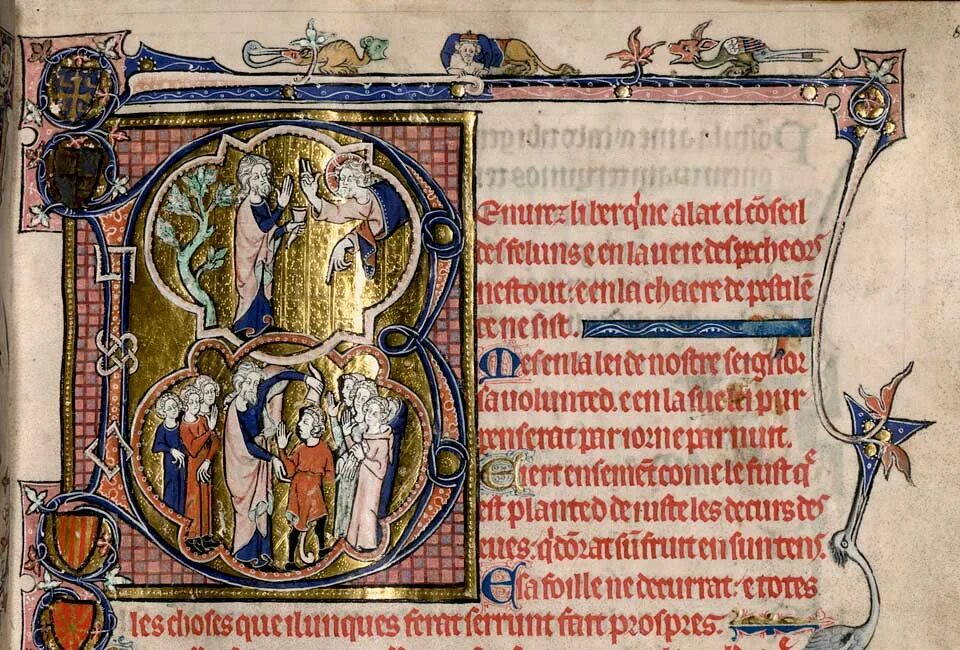 B
Enurez li ber q̍ ne alat el cōseil
des feluns e en la ueie des pecheors
ne stout: e en la chaere de pestilē
ce ne sist.
Mes en la lei de nostre seignor
sa uolunted. e en la sue lei pur
penserat par iorn e par nuit.
E iert ensemēt come le fust q̄
est planted de iuste les decurs des
eues: q̍ dōrat sun fruit en sun tens.
E sa foille ne decurrat: e totes
les choses que il unques ferat serrunt fait prospres.